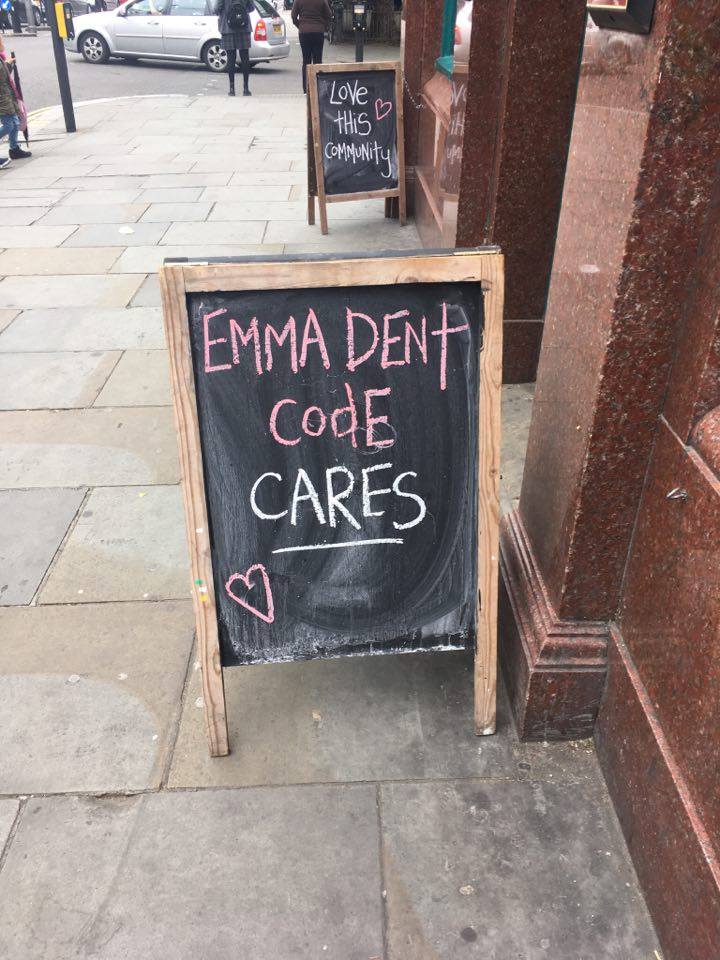 LOVE
tHiS
COMMUNIty
EMMA DENt
CodE
CARES